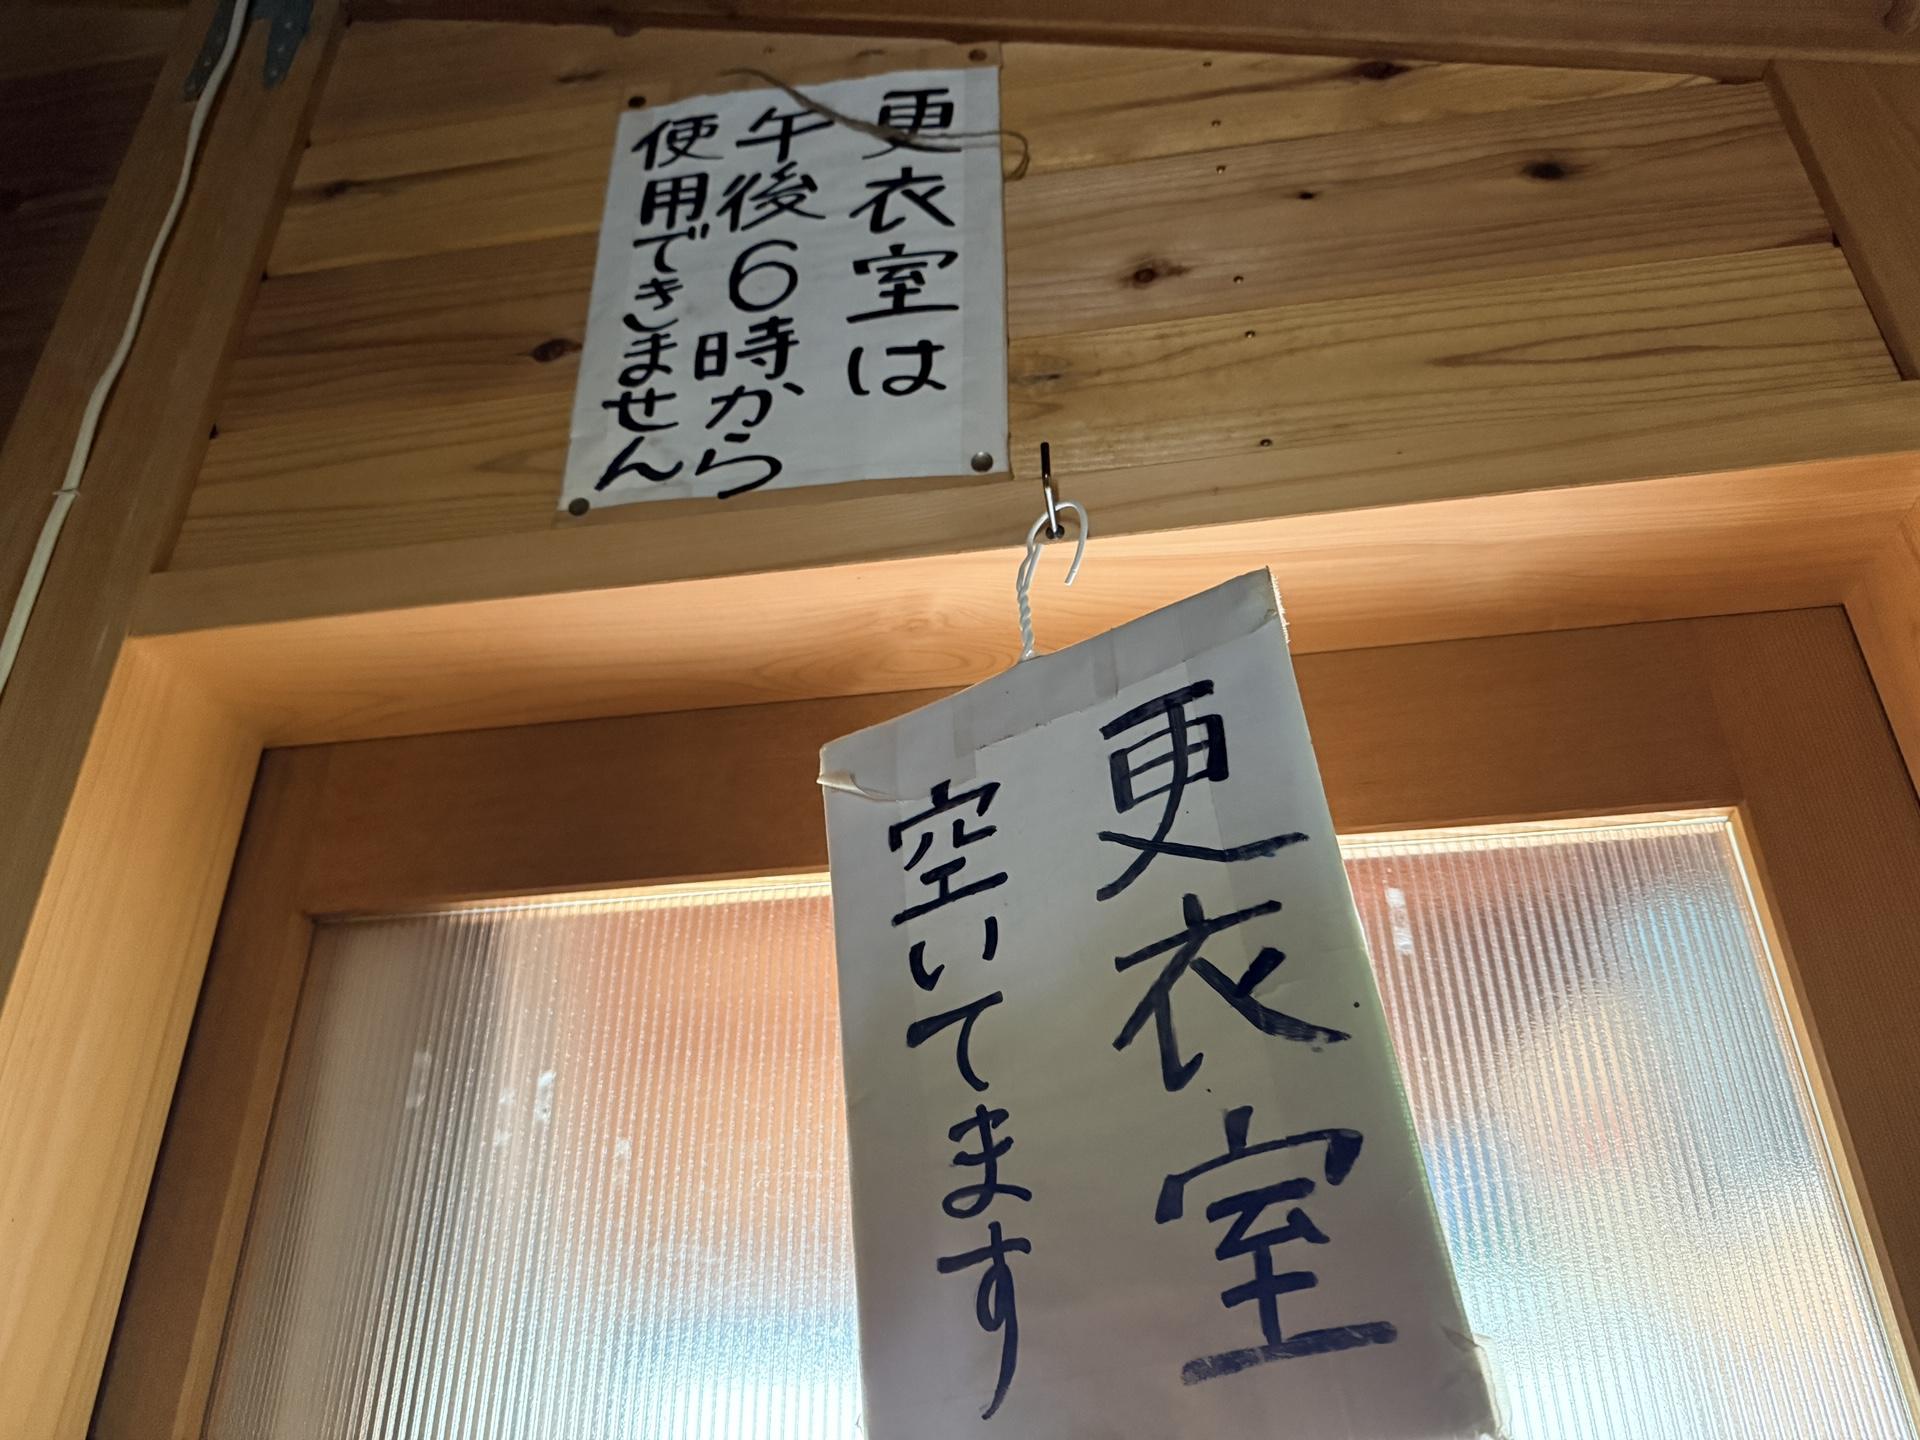 更衣室は
午後6時から
使用できません
更衣室
空いてます